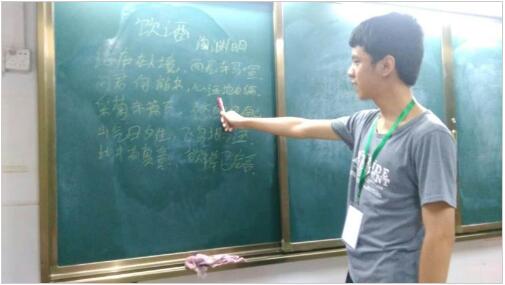 饮酒
陶渊明
结庐在人境,而无车马喧
问君何能尔,心远地自偏
采菊东篱下,悠
山气日夕佳,飞鸟相还
此中有真意,欲辨已忘言